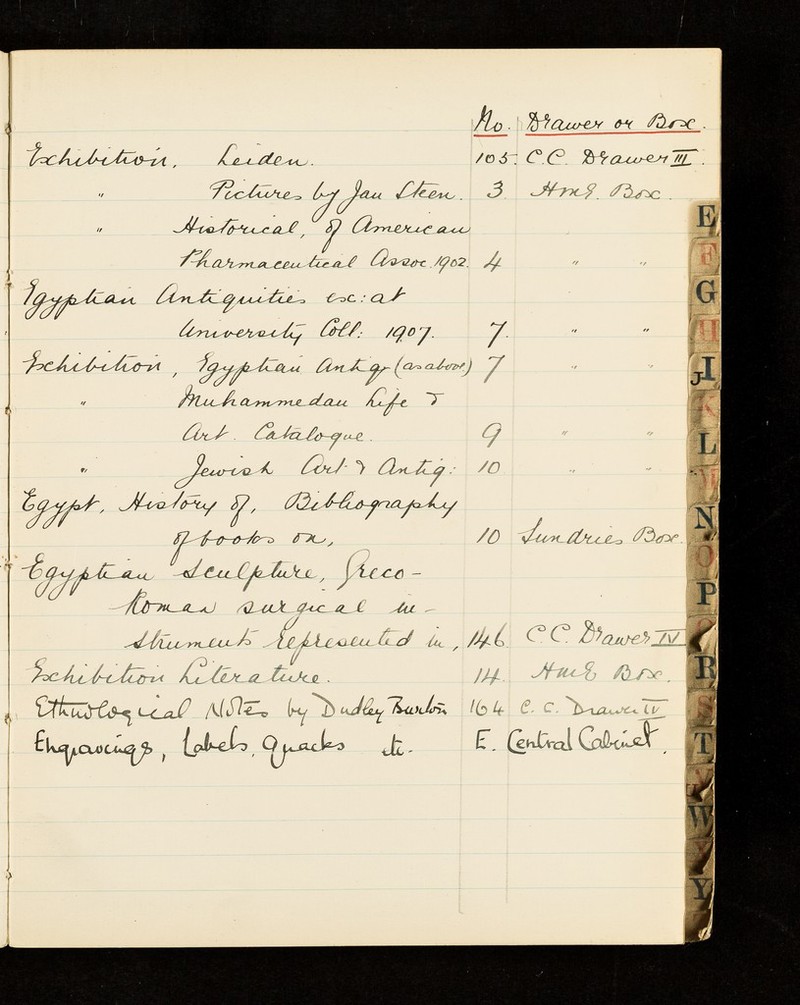 No. Drawer or Box.
Exhibition, Leiden. 105. C.C. Drawer III.
" Pictures by Jan Steen. 3 HmE. Box.
" Historical, of American
Pharmaceutical Assoc. 1902. 4 " "
Egyptian Antiquities ex: at
University Coll: 1907. 7. " "
Exhibition, Egyptian Antiq (as above) 7 " "
" Muhammedan Life &
Art. Catalogue. 9 " "
" Jewish Art & Antiq: 10 " "
Egypt, History of, Bibliography
of books on, 10 Sundries Box.
Egyptian sculpture, Greco-
Roman surgical in-
struments represented in, 146 C.C. Drawer IV
Exhibition Literature. 14. HmE Box.
Ethnological Notes by Dudley Buxton 164 C.C. Drawer IV
Engravings, Labels, Quacks etc. E. Central Cabinet.
E
F
G
H
I J
K
L
M
N
O
P
R
S
T
W
Y